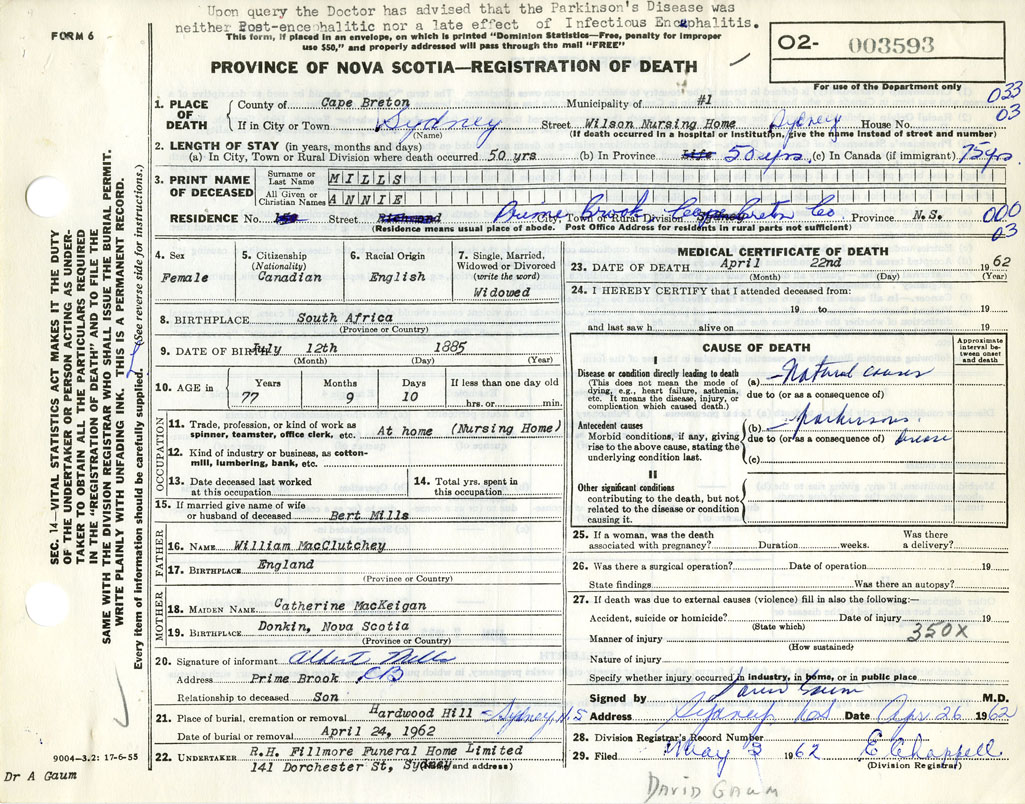 Upon query the Doctor has advised that the Parkinson's Disease was
neither Post-encephalitic nor a late effect of Infectious Encephalitis.
FORM 6
This form, if placed in an envelope, on which is printed "Dominion Statistics—Free, penalty for improper
use $50," and properly addressed will pass through the mail "FREE"
O2- 003593
PROVINCE OF NOVA SCOTIA—REGISTRATION OF DEATH
For use of the Department only
033
03
1. PLACE OF DEATH
County of Cape Breton Municipality of #1
If in City or Town Sydney Street Wilson Nursing Home Sydney House No.
(Name) (If death occurred in a hospital or institution, give the name instead of street and number)
2. LENGTH OF STAY (in years, months and days)
(a) In City, Town or Rural Division where death occurred 50 yrs (b) In Province Life 50 yrs. (c) In Canada (if immigrant) 75 yrs.
3. PRINT NAME OF DECEASED
Surname or Last Name MILLS
All Given or Christian Names ANNIE
RESIDENCE No. Street Richmond City, Town or Rural Division Sydney Prime Brook, Cape Breton Co Province N.S.
(Residence means usual place of abode. Post Office Address for residents in rural parts not sufficient)
000
03
4. Sex
Female
5. Citizenship
(Nationality)
Canadian
6. Racial Origin
English
7. Single, Married,
Widowed or Divorced
(write the word)
Widowed
8. BIRTHPLACE South Africa
(Province or Country)
9. DATE OF BIRTH July 12th 1885
(Month) (Day) (Year)
10. AGE in
Years Months Days If less than one day old
77 9 10 hrs. or min.
OCCUPATION
11. Trade, profession, or kind of work as
spinner, teamster, office clerk, etc. At home (Nursing Home)
12. Kind of industry or business, as cotton-
mill, lumbering, bank, etc.
13. Date deceased last worked
at this occupation
14. Total yrs. spent in
this occupation
15. If married give name of wife
or husband of deceased Bert Mills
FATHER
16. NAME William MacClutchey
17. BIRTHPLACE England
(Province or Country)
MOTHER
18. MAIDEN NAME Catherine MacKeigan
19. BIRTHPLACE Donkin, Nova Scotia
(Province or Country)
20. Signature of informant Albert Mills
Address Prime Brook, CB
Relationship to deceased Son
21. Place of burial, cremation or removal Hardwood Hill - Sydney N.S
Date of burial or removal April 24, 1962
22. UNDERTAKER R.H. Fillmore Funeral Home Limited
141 Dorchester St, Sydney
(Name and address)
MEDICAL CERTIFICATE OF DEATH
23. DATE OF DEATH April 22nd 1962
(Month) (Day) (Year)
24. I HEREBY CERTIFY that I attended deceased from:
19 to 19
and last saw h alive on 19
CAUSE OF DEATH
Approximate
interval be-
tween onset
and death
I
Disease or condition directly leading to death
(This does not mean the mode of
dying, e.g., heart failure, asthenia,
etc. It means the disease, injury, or
complication which caused death.)
(a) Natural causes
due to (or as a consequence of)
Antecedent causes
Morbid conditions, if any, giving
rise to the above cause, stating the
underlying condition last.
(b) Parkinsons
due to (or as a consequence of) Disease
(c)
II
Other significant conditions
contributing to the death, but not
related to the disease or condition
causing it.
25. If a woman, was the death
associated with pregnancy? Duration weeks. Was there
a delivery?
26. Was there a surgical operation? Date of operation 19
State findings Was there an autopsy?
27. If death was due to external causes (violence) fill in also the following:—
Accident, suicide or homicide? Date of injury 19
(State which)
350X
Manner of injury
(How sustained)
Nature of injury
Specify whether injury occurred in industry, in home, or in public place
Signed by David Gaum M.D.
Address Sydney NS Date Apr. 26 1962
28. Division Registrar's Record Number
29. Filed May 3 1962 E Chappell
(Division Registrar)
SEC. 14—VITAL STATISTICS ACT MAKES IT THE DUTY
OF THE UNDERTAKER OR PERSON ACTING AS UNDER-
TAKER TO OBTAIN ALL THE PARTICULARS REQUIRED
IN THE "REGISTRATION OF DEATH" AND TO FILE THE
SAME WITH THE DIVISION REGISTRAR WHO SHALL ISSUE THE BURIAL PERMIT.
WRITE PLAINLY WITH UNFADING INK. THIS IS A PERMANENT RECORD.
Every item of information should be carefully supplied. (See reverse side for instructions.)
9004—3.2: 17-6-55
Dr A Gaum
DAVID GAUM